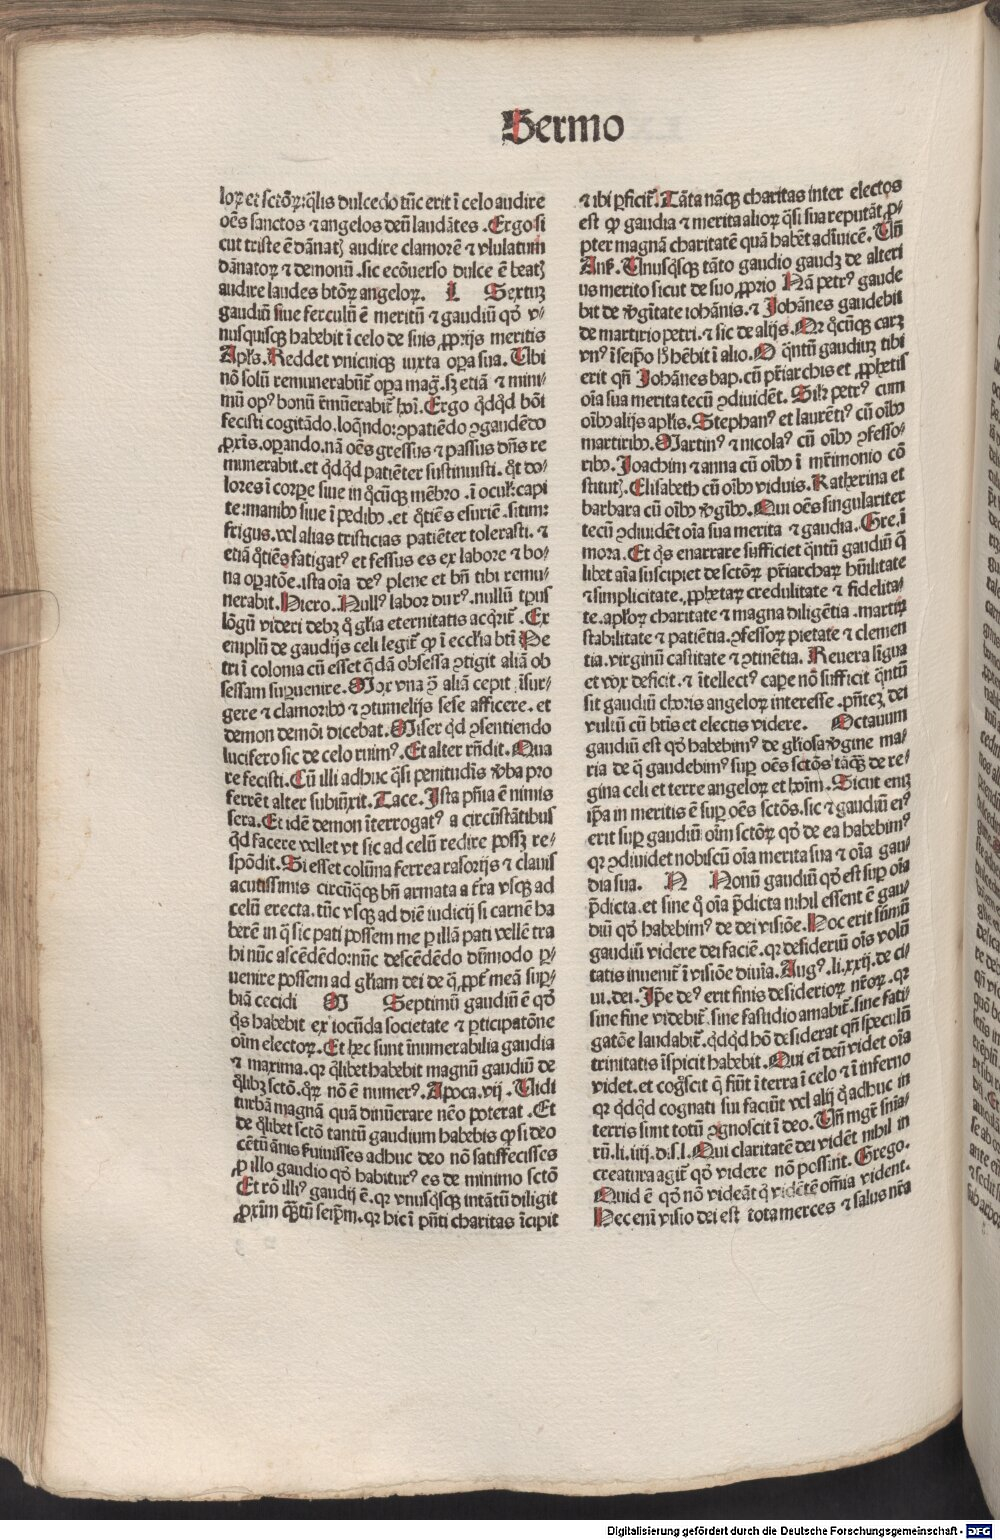 Sermo
loꝝ et sctõꝝ: q̃lis dulcedo tũc erit ĩ celo audire
oẽs sanctos ⁊ angelos deũ laudãtes. Ergo si
cut triste ẽ dãnatꝭ audire clamorẽ ⁊ vlulatum
dãnatoꝝ ⁊ demonũ. sic ecõuerso dulce ẽ beatꝭ
audire laudes btõꝝ angeloꝝ. L Sextuꝫ
gaudiũ siue ferculũ ẽ meritũ ⁊ gaudiũ qđ v-
nusquisqꝫ habebit ĩ celo de suis ꝓprijs meritis
Apl̃s. Reddet vnicuiqꝫ iuxta oꝑa sua. Vbi
nõ solũ remunerabũt̃ oꝑa mag̃. sꝫ etiã ⁊ mini-
mũ opꝰ bonũ rẽmũerabit̃ hoĩ. Ergo qͥdqͥd boni
fecisti cogitãdo. loq̃ndo: ꝯpatiẽdo ꝯgaudẽdo
ꝓxĩs. oꝑando. nã oẽs gressus ⁊ passus dñs re
munerabit. et qͥdqͥd patiẽter sustinuisti. qͦt do-
lores ĩ corꝑe siue in qͦcũqꝫ mẽbro. ĩ ocul: capi
te: manibꝰ siue ĩ pedibꝰ. et qͦtiẽs esuriẽ. sitim:
frigus. vel alias tristicias patiẽter tolerasti. ⁊
etiã qͦtiẽs fatigatꝰ et fessus es ex labore ⁊ bo-
na oꝑatõe. ista oĩa deꝰ plene et bñ tibi remu-
nerabit. Hiero. Nullꝰ labor durꝰ. nullũ tp̃us
lõgũ videri debꝫ qͦ gl̃ia eternitatis acqͥrit̃. Ex
emplũ de gaudijs celi legit̃ ꝙ ĩ eccl̃ia bt̃i Pe
tri ĩ colonia cũ esset q̃dã obsessa ꝯtigit aliã ob
sessam suꝑuenire. Mox vna ꝯ̃ aliã cepit ĩsur-
gere ⁊ clamoribꝰ ⁊ ꝯtumelijs sese afficere. et
demon demõi dicebat. Miser qͥd ꝯsentiendo
lucifero sic de celo ruimꝰ. Et alter rñdit. Qua
re fecisti. Cũ illi adhuc q̃si penitudĩs v̾ba pro
ferrẽt alter subiũxit. Tace. Ista pñia ẽ nimis
sera. Et idẽ demon ĩterrogatꝰ a circũstãtibus
qͥd facere vellet vt sic ad celũ redire possꝫ re-
spõdit. Si esset colũna ferrea rasorijs ⁊ clauis
acutissimis circũqͣqꝫ bñ armata a tr̃a vsqꝫ ad
celũ erecta. tũc vsqꝫ ad diẽ iudicij si carnẽ ha
berẽ in q̃ sic pati possem me ꝑ illã pati vellẽ tra
hi nũc ascẽdẽdo: nũc descẽdẽdo dũmodo ꝑ-
uenire possem ad gl̃iam dei de q̃ ꝓpt̃ meã suꝑ-
biã cecidi M Septimũ gaudiũ ẽ qđ
qͥs habebit ex iocũda societate ⁊ ꝑticipatõne
oĩm electoꝝ. Et hec sunt ĩnumerabilia gaudia
⁊ maxima. qꝛ qͥlibet habebit magnũ gaudiũ de
qͦlibꝫ sctõ. qͦꝝ nõ ẽ numerꝰ. Apoca. vij. Vidi
turbã magnã quã dinũerare nẽo poterat. Et
de qͦlibet sctõ tantũ gaudium habebis ꝙ si deo
cẽtũ ãnis s̾uiuisses adhuc deo nõ satiffecisses
ꝓ illo gaudio qđ habiturꝰ es de minimo sctõ
Et rõ illiꝰ gaudij ẽ. qꝛ vnusqͥsqꝫ intãtũ diligit
ꝓxim̃ qͣtũ seip̃m. qꝛ hic ĩ pñti charitas ĩcipit
⁊ ibi ꝑficit̃. Tãta nãqꝫ charitas inter electos
est ꝙ gaudia ⁊ merita alioꝝ q̃si sua reputãt ꝓ-
pter magnã charitatẽ quã habẽt adĩuicẽ. Vñ
Anẜ. Vnusqͥsqꝫ tãto gaudio gaudꝫ de alteri
us merito sicut de suo ꝓprio Nã petrꝰ gaude
bit de v̾gĩtate iohãnis. ⁊ Johãnes gaudebit
de martirio petri. ⁊ sic de alijs. Qꝛ qͦcũqꝫ carꝫ
vnꝰ ĩ seip̃o hꝫ hẽbit ĩ alio. O qͣntũ gaudiuꝫ tibi
erit qñ Johãnes bap. cũ pr̃iarchis et ꝓphetis
oĩa sua merita tecũ ꝯdiuidẽt. Sil̃r petrꝰ cum
oĩbꝰ alijs apl̃is. Stephanꝰ et laurẽtiꝰ cũ oĩbꝰ
martiribꝰ. Martinꝰ ⁊ nicolaꝰ cũ oĩbꝰ ꝯfesso-
ribꝰ. Joachim ⁊ anna cũ oĩbꝰ ĩ mr̃imonio cõ
stitutꝭ. Elisabeth cũ oĩbꝰ viduis. Katherina et
barbara cũ oĩbꝰ v̾gĩbꝰ. Qui oẽs singulariter
tecũ ꝯdiuidẽt oĩa sua merita ⁊ gaudia. Gre. ĩ
mora. Et qͥs enarrare sufficiet qͣntũ gaudiũ q̃
libet aĩa suscipiet de sctõꝝ pr̃iarchaꝝ hũilitate
⁊ simplicitate. ꝓphetaꝝ credulitate ⁊ fidelita-
te. apl̃oꝝ charitate ⁊ magna diligẽtia. martiꝝ
stabilitate ⁊ patiẽtia. ꝯfessoꝝ pietate ⁊ clemen
tia. virginũ castitate ⁊ ꝯtinẽtia. Reuera lĩgua
et vox deficit. ⁊ ĩtellectꝰ caꝑe nõ sufficit qͣntũ
sit gaudiũ choris angeloꝝ interesse. pñtẽꝫ dei
vultũ cũ btĩs et electis videre. Octauum
gaudiũ est qđ habebimꝰ de gl̃iosa v̾gine ma-
ria de q̃ gaudebimꝰ suꝑ oẽs sctõs tãqͣꝫ de re-
gina celi et terre angeloꝝ et hoĩm. Sicut eniꝫ
ip̃a in meritis ẽ suꝑ oẽs sctõs. sic ⁊ gaudiũ eiꝰ
erit suꝑ gaudiũ oĩm sctõꝝ qđ de ea habebimꝰ
qꝛ ꝯdiuidet nobiscũ oĩa merita sua ⁊ oĩa gau
dia sua. N Nonũ gaudiũ qđ est suꝑ oĩa
p̃dicta. et sine qͦ oĩa p̃dicta nihil essent ẽ gau
diũ qđ habebimꝰ de dei visiõe. Hoc erit sũmũ
gaudiũ videre dei faciẽ. qꝛ desideriũ oĩs volũ
tatis inuenit̃ ĩ visiõe diuĩa. Augꝰ. li. xxij. de ci-
ui. dei. Ip̃e deꝰ erit finis desiderioꝝ nr̃oꝝ. qꝛ
sine fine videbit̃. sine fastidio amabit̃. sine fati-
gatõe laudabit̃. qͥdqͥd hõ desiderat qñ speculũ
trinitatis ĩspicit habebit. Qui eĩ deũ videt oĩa
videt. et cog̃scit q̃ fiũt ĩ terra ĩ celo ⁊ ĩ inferno
qꝛ qͥdqͥd cognati sui faciũt vel alij qͥ adhuc in
terris sunt totũ ꝯgnoscit ĩ deo. Vñ mgr̃ sñia-
rũ. li. iiij. d. s. l. Qui claritatẽ dei vidẽt nihil in
creatura agit̃ qđ videre nõ possint. Grego.
Quid ẽ qđ nõ videãt qͥ vidẽtẽ om̃ia vident.
Hec enĩ visio dei est tota merces ⁊ salus nr̃a
Digitalisierung gefördert durch die Deutsche Forschungsgemeinschaft - DFG